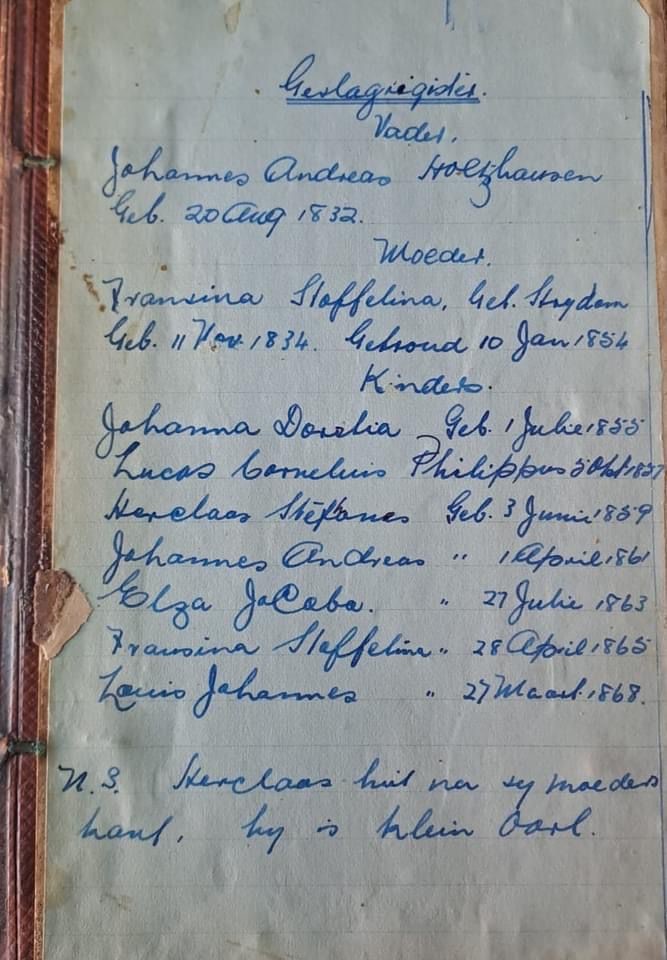 Geslagrigister.
Vader.
Johannes Andreas Holtzhausen
Geb. 20 Aug 1832.
Moeder.
Fransina Stoffelina, Geb. Strydom
Geb. 11 Nov. 1834. Getroud 10 Jan 1854
Kinders.
Johanna Dorelia Geb. 1 Julie 1855
Lucas Cornelius Philippus 5 Okt 1857
Herclaas Stefanes Geb. 3 Junie 1859
Johannes Andreas " 1 April 1861
Elza JaCoba. " 27 Julie 1863
Fransina Stoffelina " 28 April 1865
Louis Johannes " 27 Maart 1868.
N.S. Herclaas hiet na sy moeders
kant, hy is klein